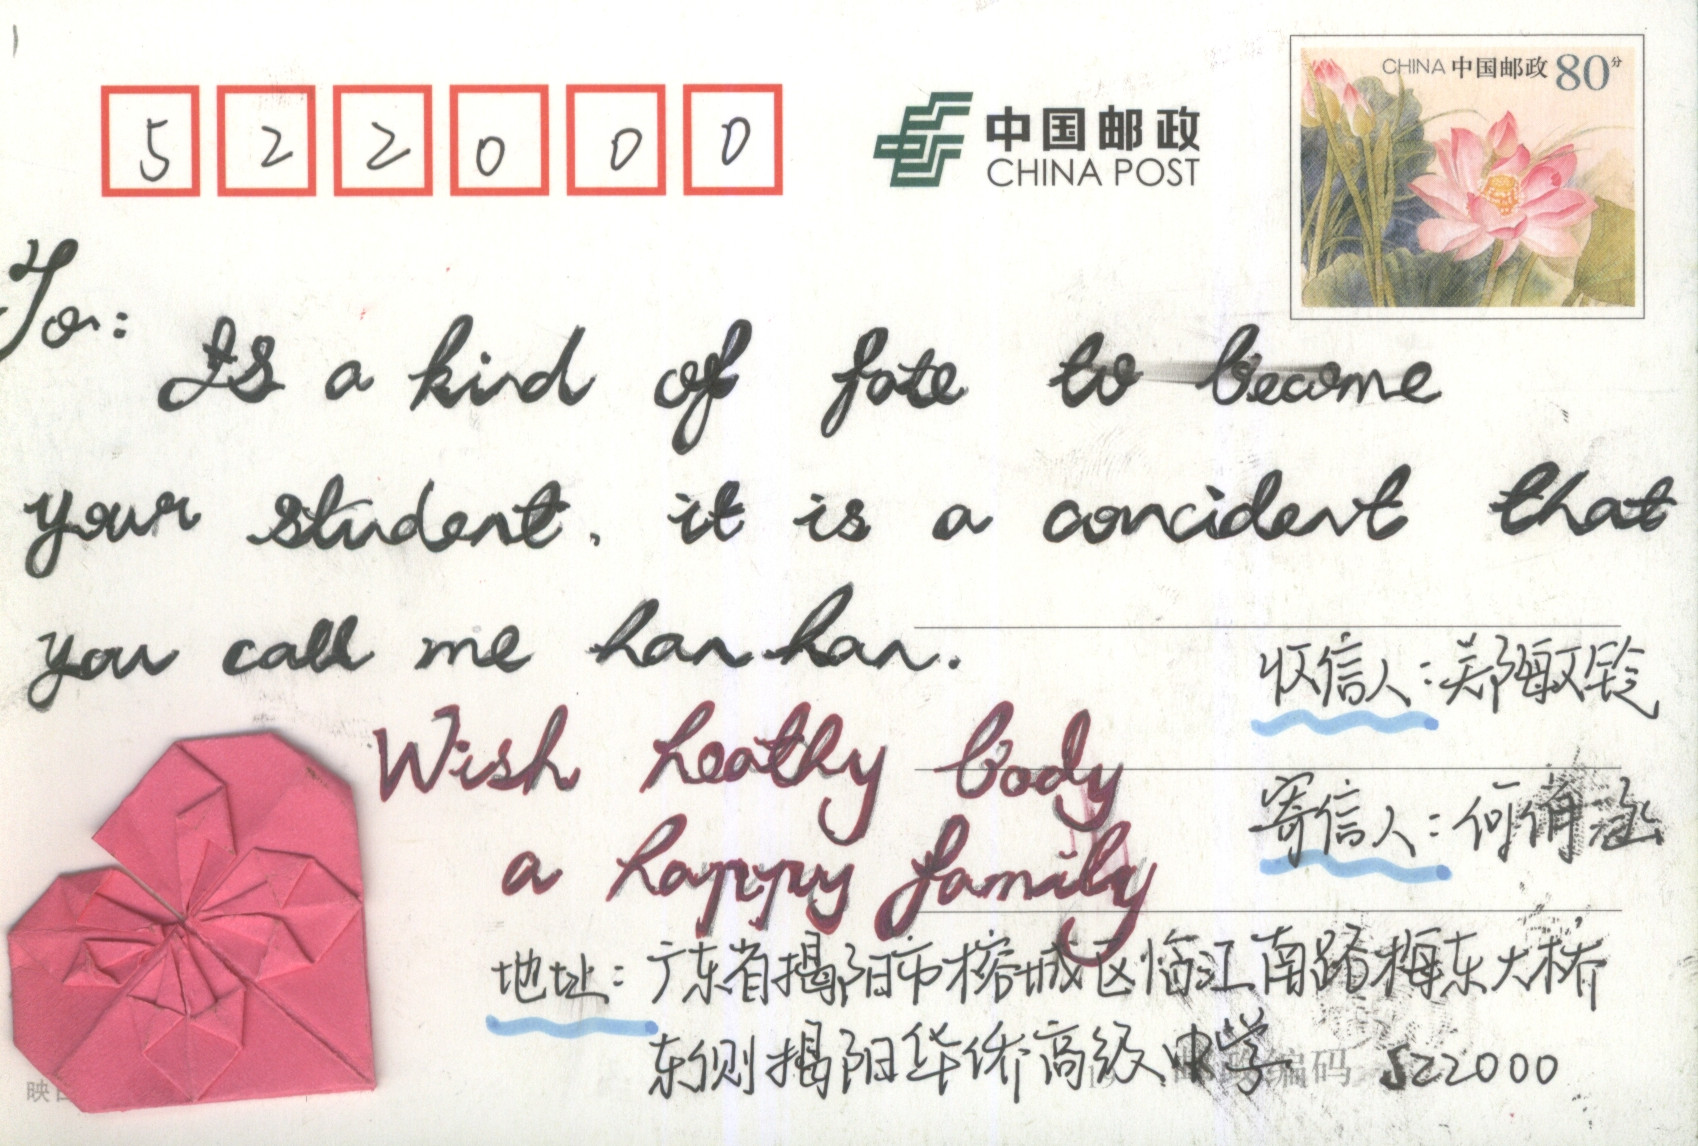 522000
中国邮政
CHINA POST
CHINA 中国邮政 80分
To:
Is a kind of fate to become
your student, it is a concident that
you call me han han.
收信人:郑敏铃
Wish heathy body
寄信人:何俏涵
a happy family
地址:广东省揭阳市榕城区临江南路梅东大桥
东侧揭阳华侨高级中学 邮政编码 522000
映日